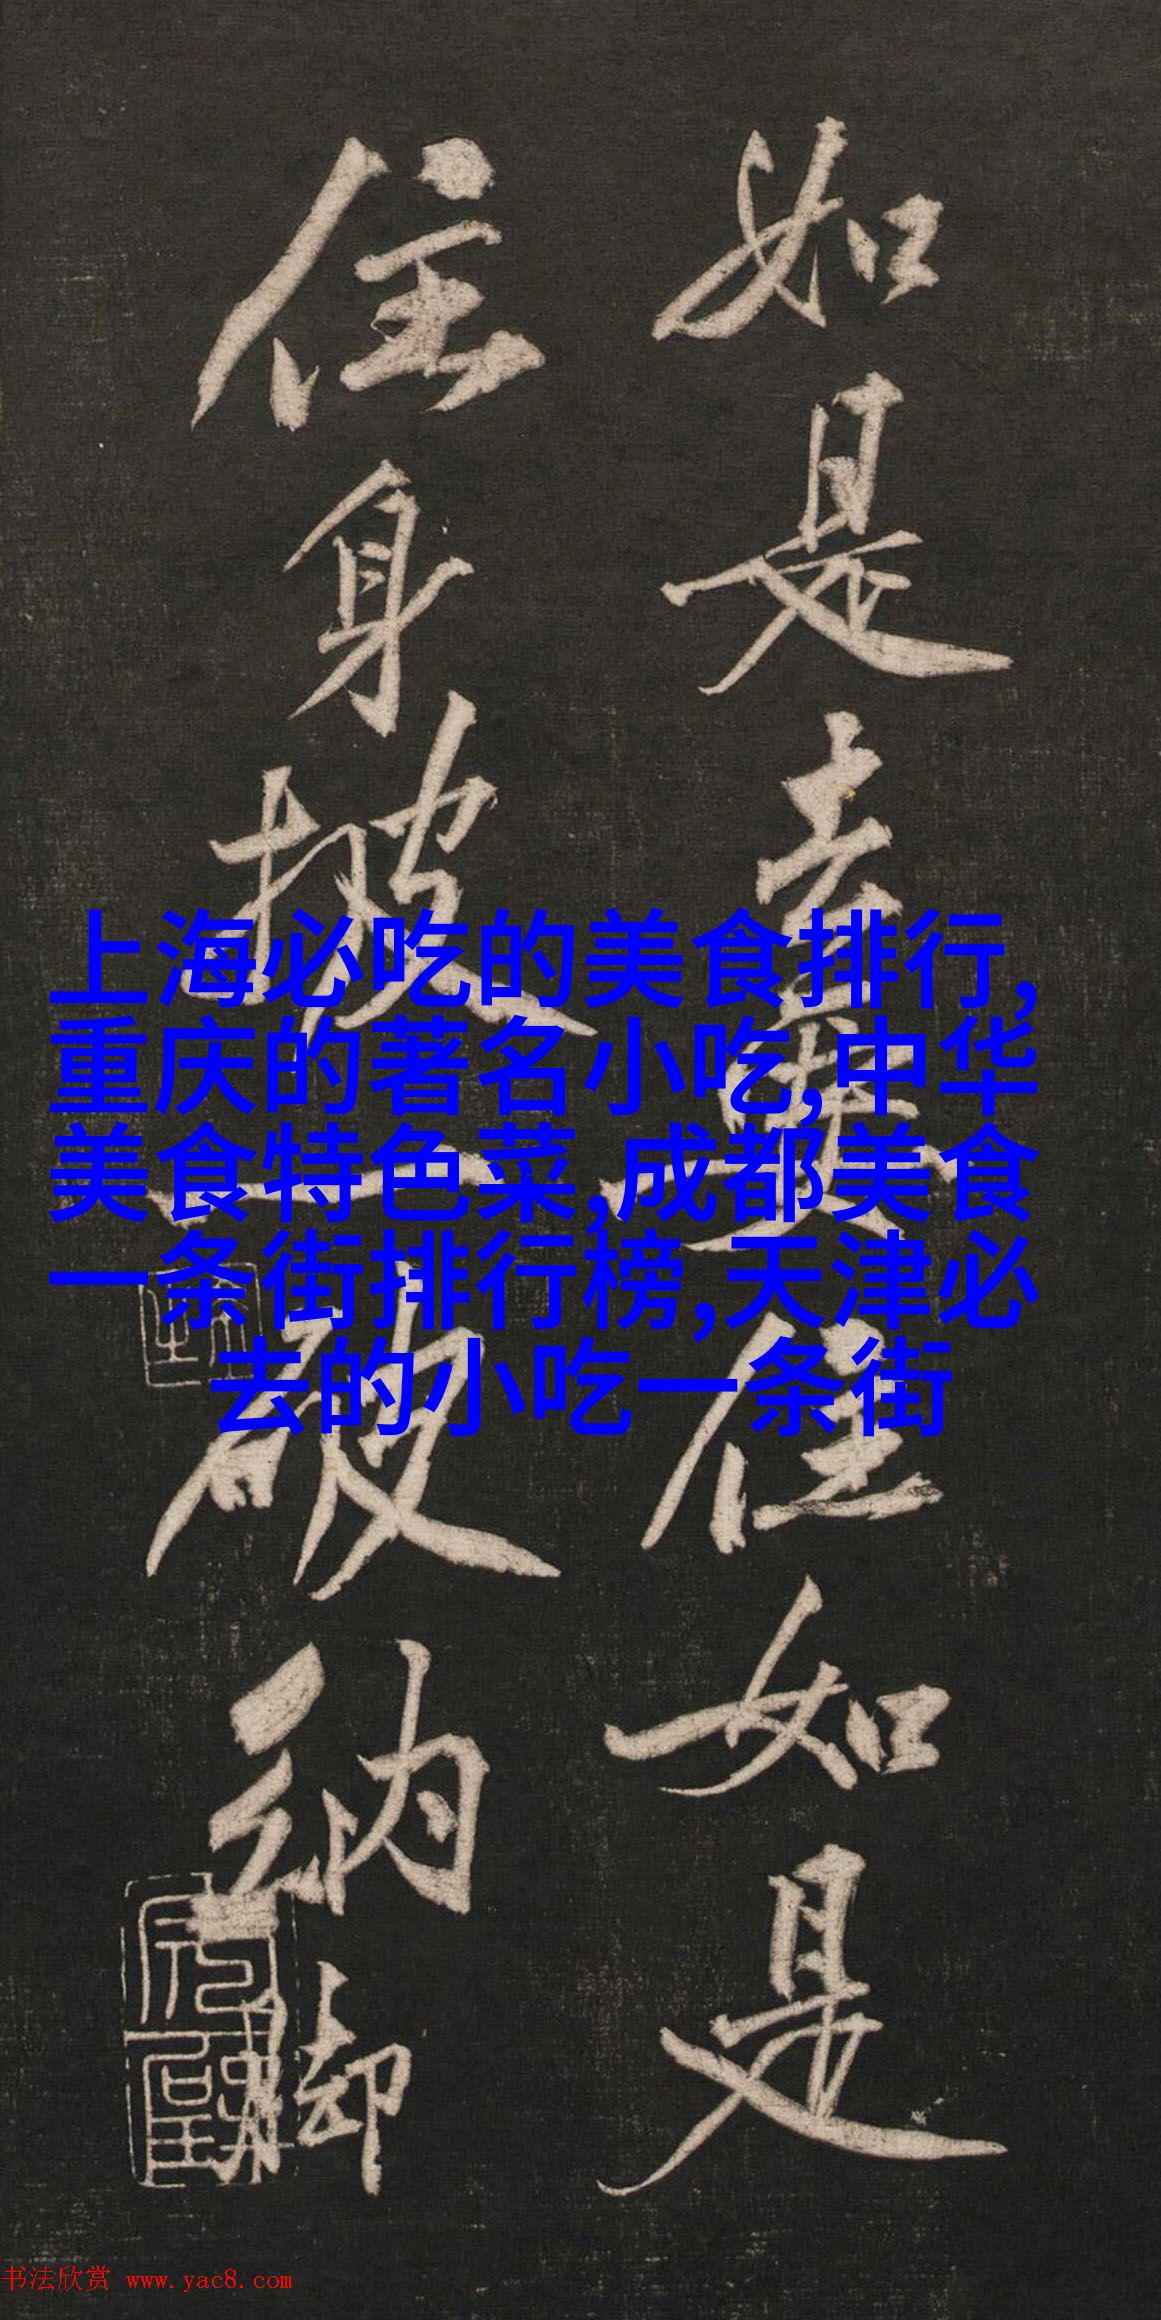 如是去住如是
住身披一破纳脚
上海必吃的美食排行,
重庆的著名小吃,中华
美食特色菜,成都美食
一条街排行榜,天津必
去的小吃一条街
书法欣赏 www.yac8.com